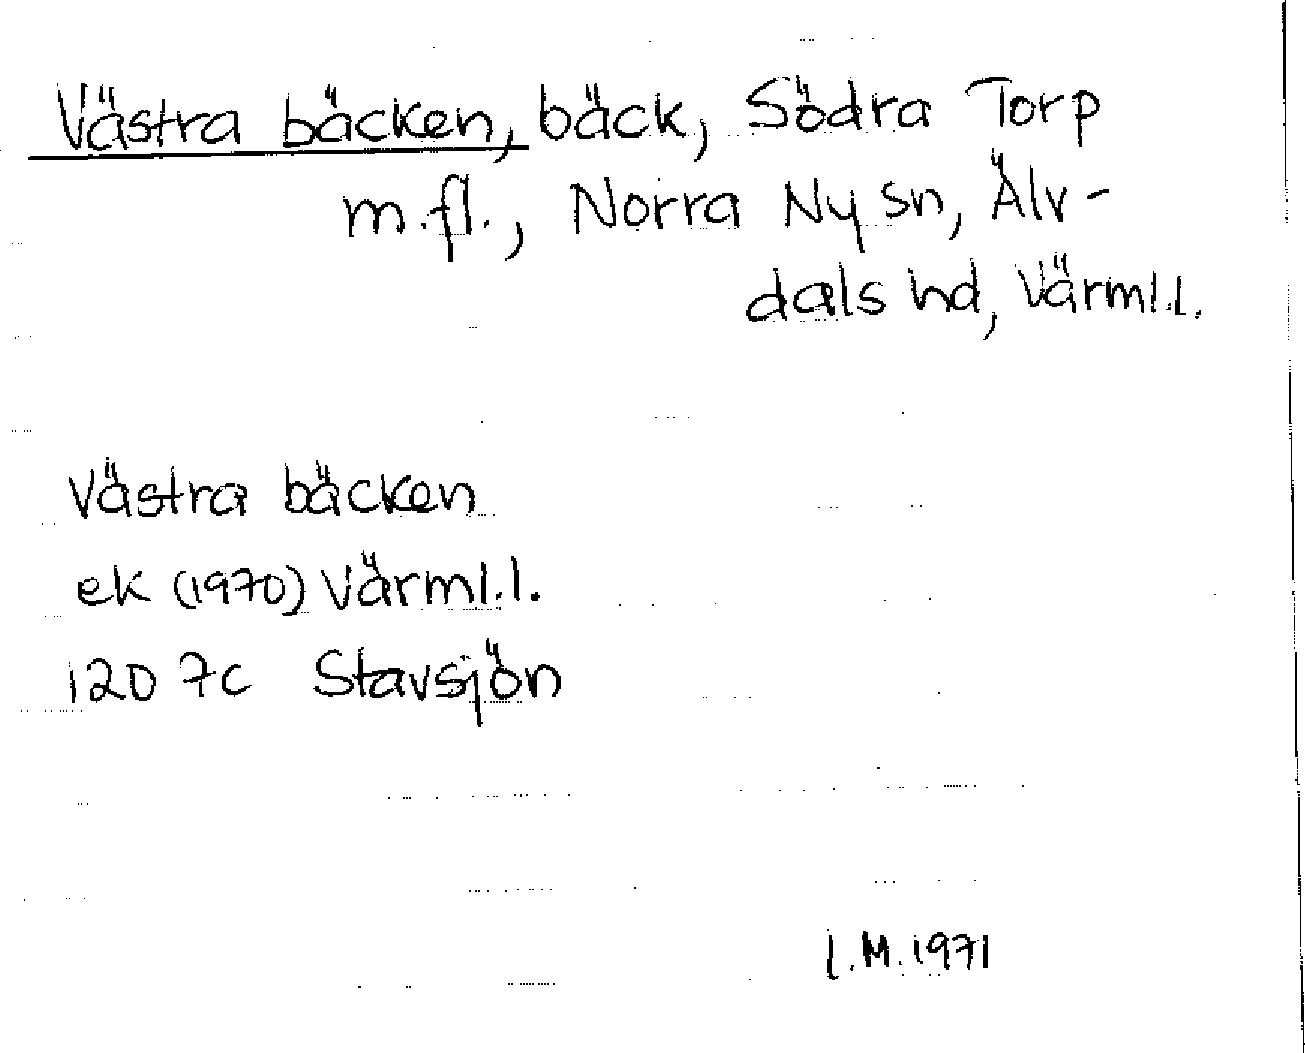 Västra bäcken, bäck, Södra Torp
m.fl., Norra Ny sn, Älv-
dals hd, Värml.l.
Västra bäcken
ek (1970) Värml.l.
120 7c Stavsjön
I.M. 1971